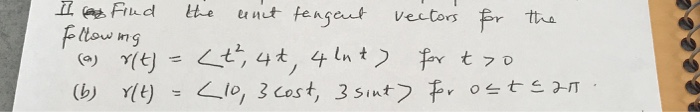 II Find the unit tangent vectors for the
following
(a) r(t) = <t², 4t, 4 ln t> for t > 0
(b) r(t) = <10, 3 cost, 3 sint> for 0 ≤ t ≤ 2π.